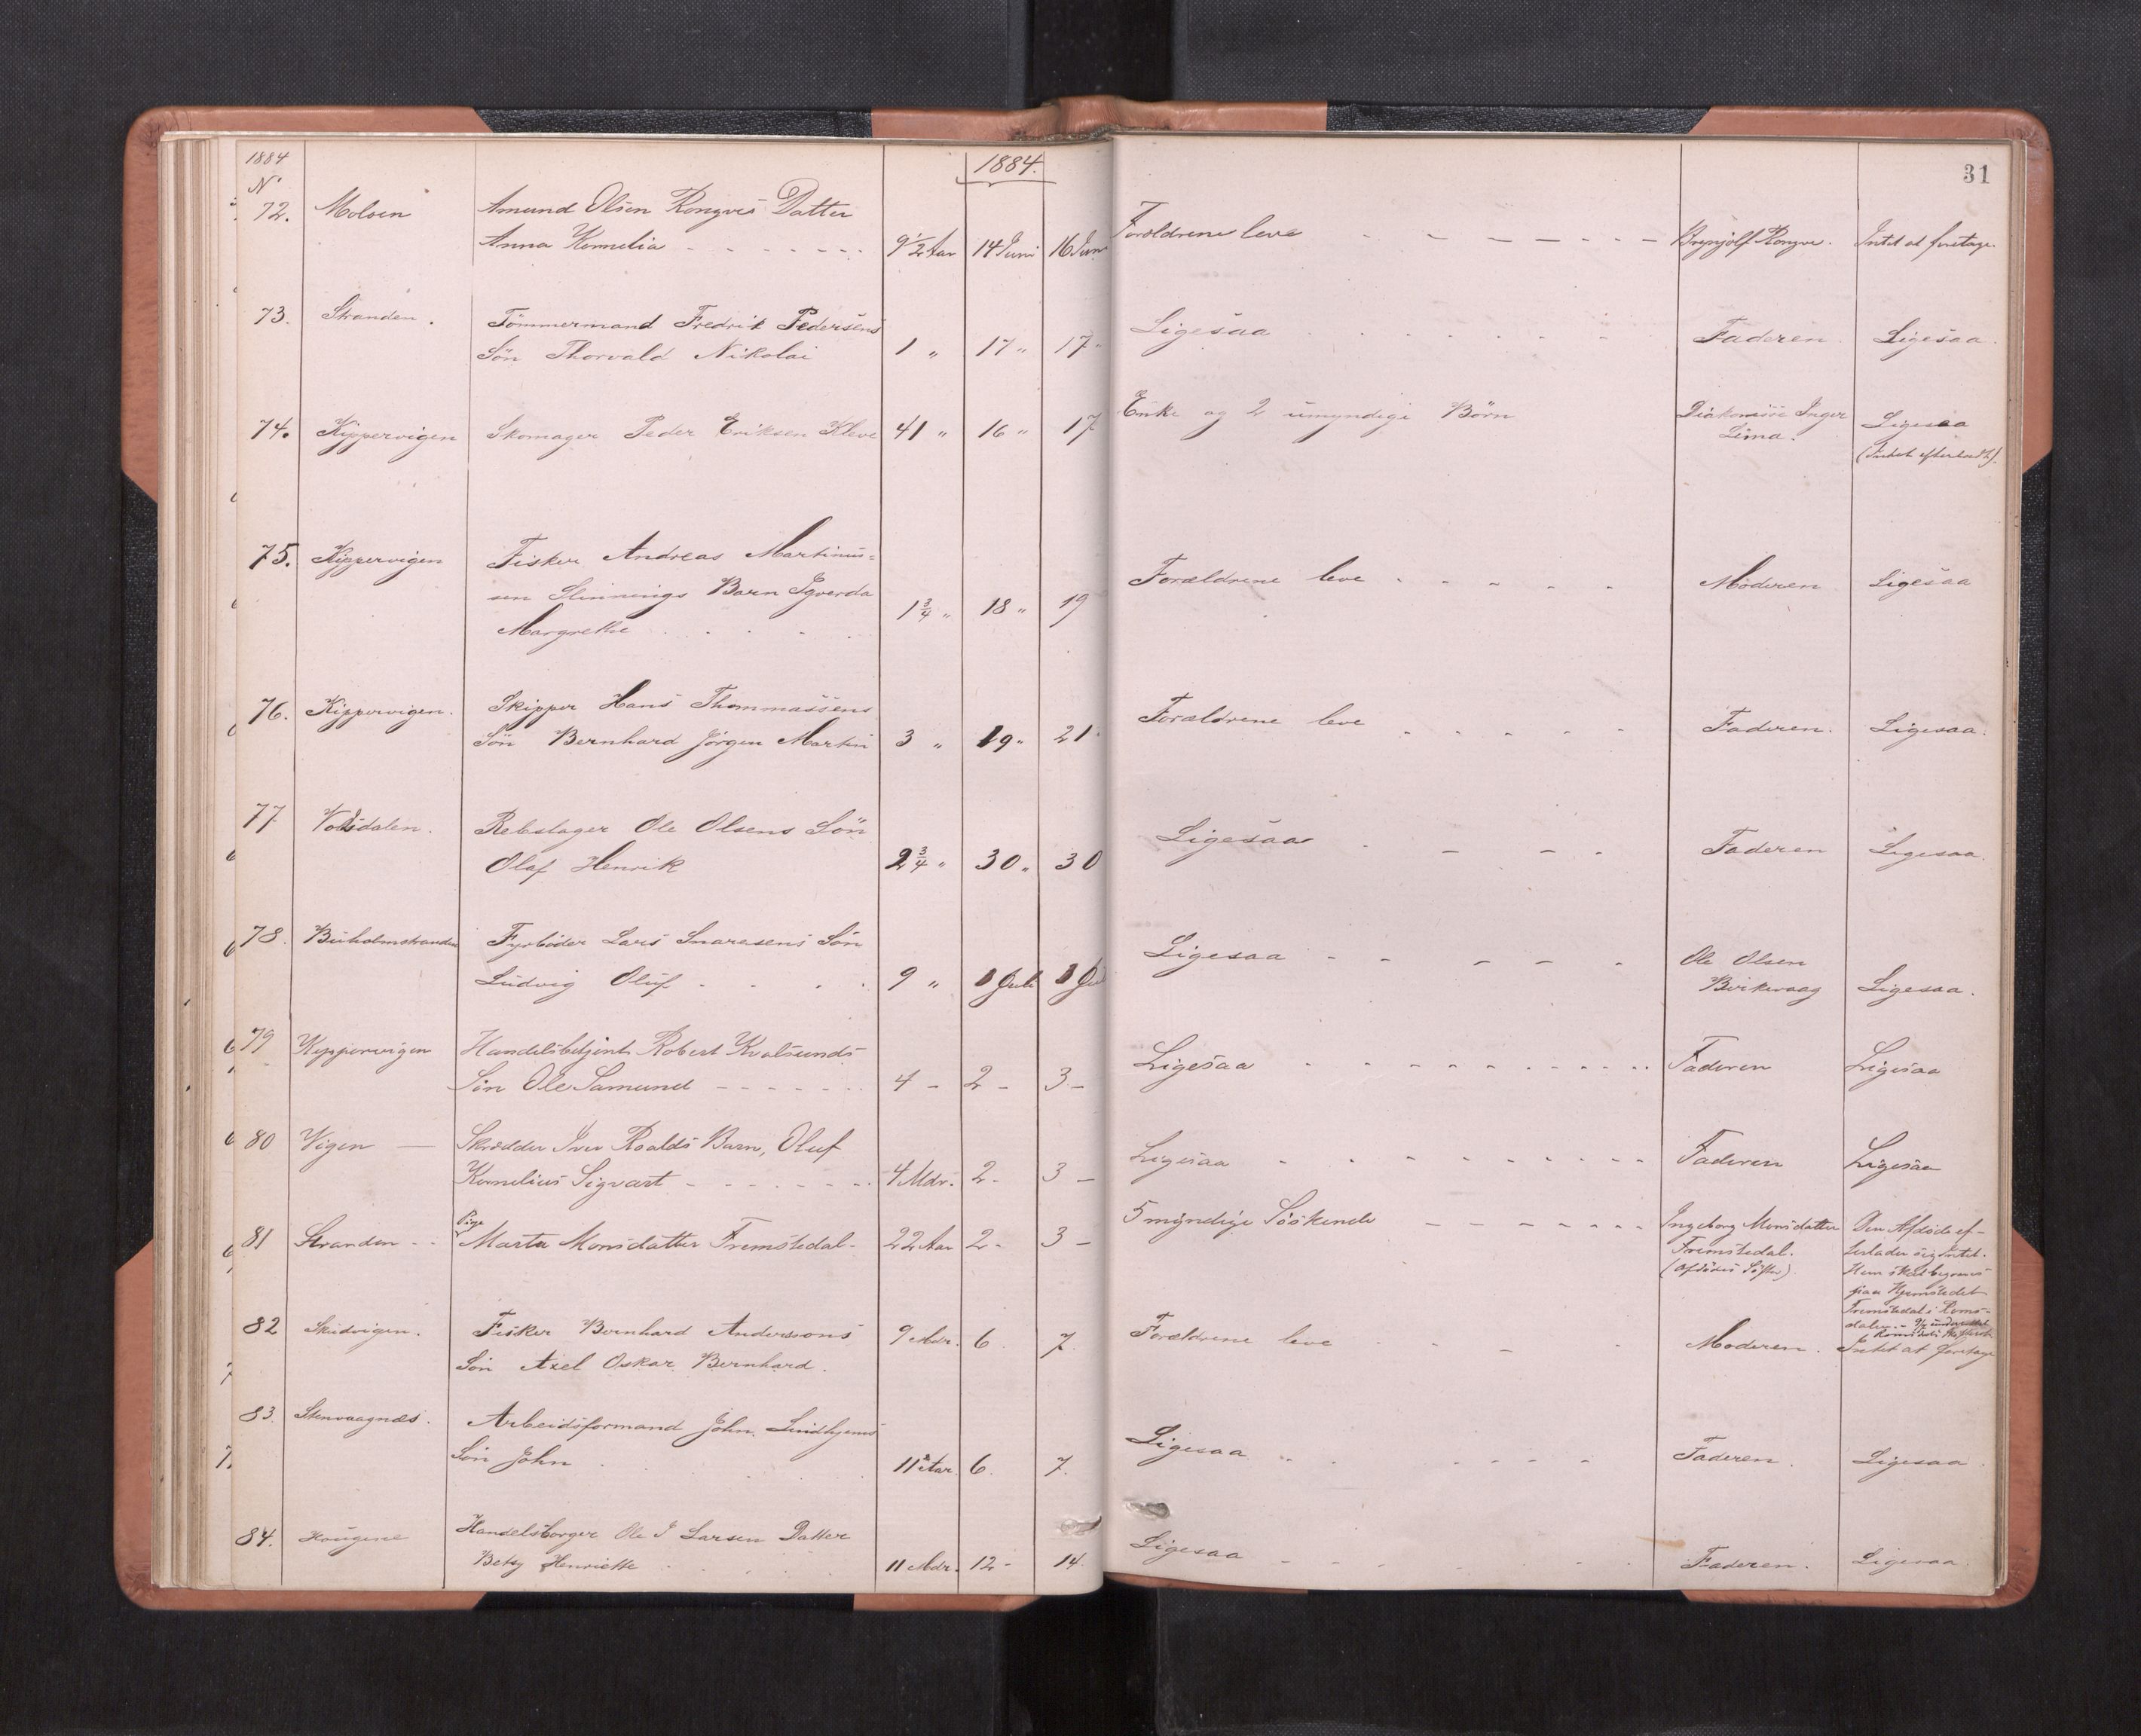 1884
1884.
31
No
72. Moloen Amund Olsen Rongves Datter
Anna Kornelia 9 1/2 Aar 14 Juni 16 Juni Forældrene leve Brynjolf Rongve. Intet at foretage.
73. Stranden. Tömmermand Fredrik Pedersens
Sön Thorvald Nikolai 1 " 17 " 17 " Ligesaa Faderen. Ligesaa.
74. Kippervigen Skomager Peder Eriksen Kleve 41 " 16 " 17 Enke og 2 umyndige Börn Diakonisse Inger Ligesaa
Lima. (Intet efterladt).
75. Kippervigen Fisker Andreas Martinus-
sen Slinnings Barn Sgverda
Margrethe 1 3/4 " 18 " 19 Forældrene leve Moderen Ligesaa
76. Kippervigen. Skipper Hans Thommassens
Sön Bernhard Jörgen Martin 3 " 19 " 21 Forældrene leve Faderen. Ligesaa.
77 Volsdalen. Rebslager Ole Olsens Sön
Olaf Henrik 2 3/4 " 30 " 30 Ligesaa Faderen Ligesaa.
78. Buholmstranden Fyrböder Lars Snaresens Sön
Ludvig Oluf 9 " 1 Juli 1 Jul Ligesaa Ole Olsen
Birkevaag Ligesaa.
79 Kippervigen Handelsbetjent Robert Kvalsunds
Sön Ole Samund 4 - 2 - 3 - Ligesaa Faderen Ligesaa
80 Vigen Skrædder Iver Roalds Barn, Oluf
Kornelius Sigvart 4 Mdr. 2 - 3 - Ligesaa Faderen Ligesaa
81 Stranden Pige Marta Monsdatter Fremstedal 22 Aar 2 - 3 - 5 myndige Söskende Ingeborg Monsdatter
Fremstedal.
(Afdödes Söster)
Den Afdöde ef-
terlader sig Intet.
Hun skal begraves
paa Hjemstedet
Fremstedal i Roms-
dalen.
82 Skidvigen. Fisker Bernhard Anderssons 9 Mdr. 6 7. Forældrene leve Moderen. Intet at foretage
Sön Axel Oskar Bernhard.
83. Stenvaagnæs. Arbeidsformand John Lindhjems
Sön John 11 Aar. 6. 7. Ligesaa Faderen. Ligesaa.
84. Hougene Handelsborger Ole J Larsen Datter
Betsy Henriette 11 Mdr. 12 - 14. Ligesaa Faderen. Ligesaa.